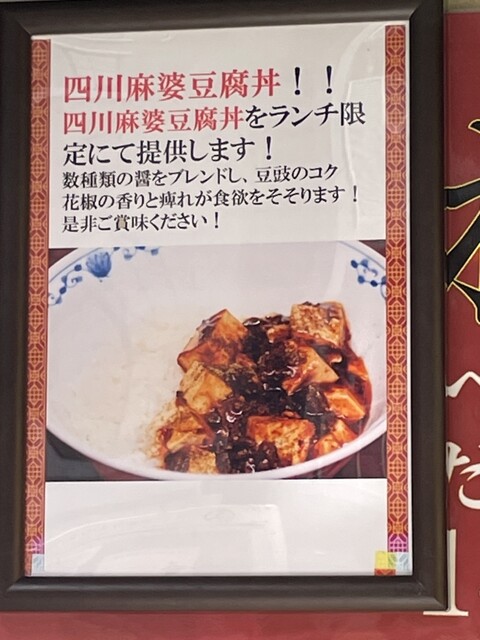 四川麻婆豆腐丼！！
四川麻婆豆腐丼をランチ限
定にて提供します！
数種類の醤をブレンドし、豆豉のコク
花椒の香りと痺れが食欲をそそります！
是非ご賞味ください！